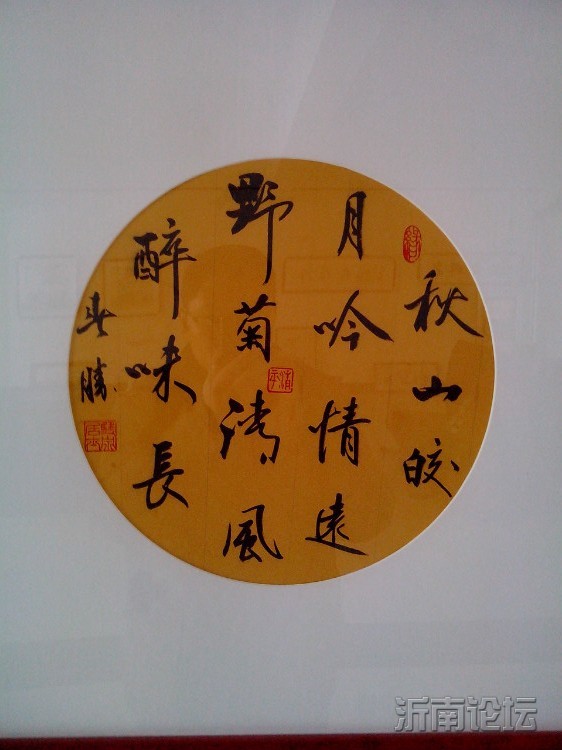 秋山皎
月吟情遠
野菊清風
醉味長
沂南论坛